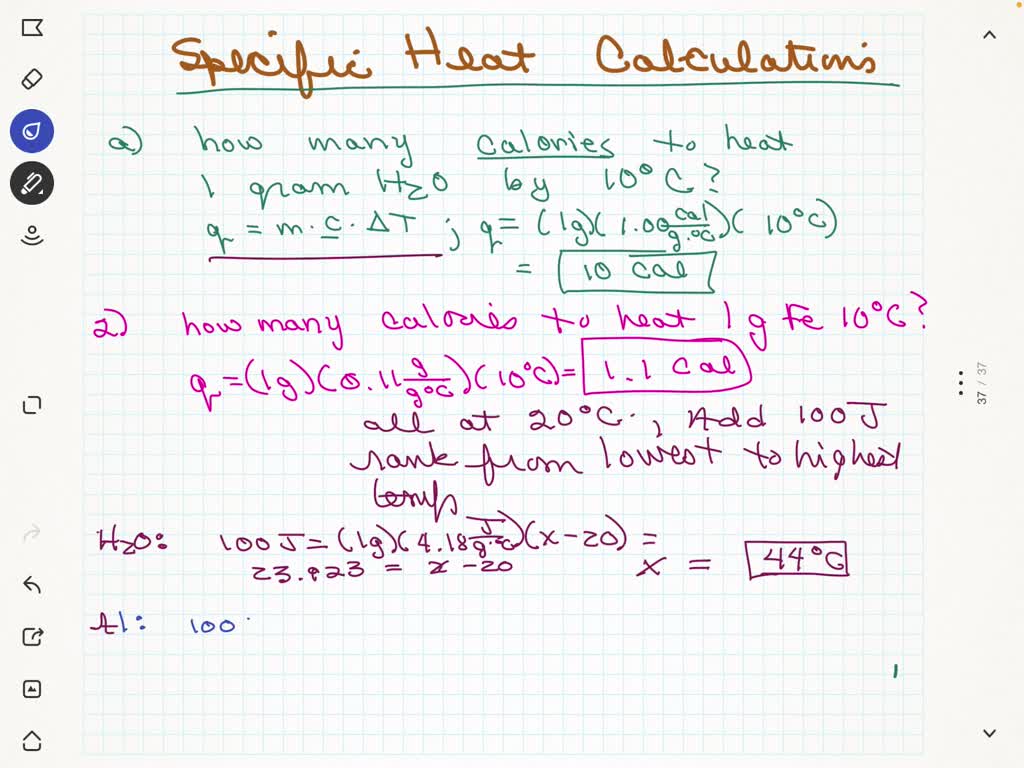 Specific Heat Calculations
a) how many calories to heat
1 gram H2O by 10°C?
q = m·c·ΔT ; q = (1g)(1.00 cal/g·°C)(10°C)
= 10 cal
2) how many calories to heat 1 g Fe 10°C?
q = (1g)(0.11 g/g°C)(10°C) = 1.1 cal
all at 20°C. ; Add 100J
rank from lowest to highest
temp
H2O: 100 J = (1g)(4.18 J/g·°C)(x-20) =
23.923 = x-20 x = 44°C
Al: 100
1
37 / 37